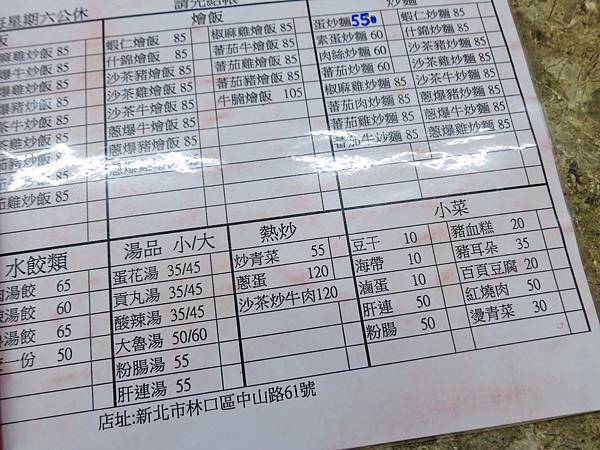 每星期六公休
請先結帳
飯
燴飯
炒麵
雞炒飯 85
蝦仁燴飯 85
椒麻雞燴飯 85
蛋炒麵 55
蝦仁炒麵 85
牛炒飯 85
什錦燴飯 85
番茄牛燴飯 85
素蛋炒麵 60
什錦炒麵 85
雞炒飯 85
沙茶豬燴飯 85
蕃茄雞燴飯 85
肉絲炒麵 60
沙茶豬炒麵 85
豬炒飯 85
沙茶牛燴飯 85
蕃茄豬燴飯 85
蕃茄炒麵 60
沙茶雞炒麵 85
牛炒飯 85
蔥爆牛燴飯 85
牛腩燴飯 105
椒麻雞炒麵 85
沙茶牛炒麵 85
雞炒飯 85
蔥爆豬燴飯 85
蕃茄肉炒麵 85
蔥爆豬炒麵 85
豬炒飯 85
蕃茄雞炒麵 85
蔥爆牛炒麵 85
牛炒飯 85
蕃茄牛炒麵 85
蔥爆雞炒麵 85
茄雞炒飯 85
水餃類
湯品 小/大
熱炒
小菜
湯餃 65
蛋花湯 35/45
炒青菜 55
豆干 10
豬血糕 20
湯餃 60
貢丸湯 35/45
蔥蛋 120
海帶 10
豬耳朵 35
湯餃 65
酸辣湯 35/45
沙茶炒牛肉120
滷蛋 10
百頁豆腐 20
一份 50
大魯湯 50/60
肝連 50
紅燒肉 50
粉腸湯 55
粉腸 50
燙青菜 30
肝連湯 55
店址:新北市林口區中山路61號